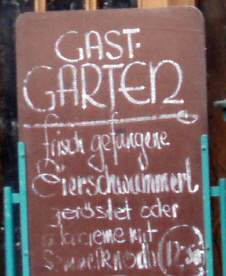 GAST-
GARTEN
frisch gefangene
Eierschwammerl
geröstet oder
a la creme mit
Semmelknödel